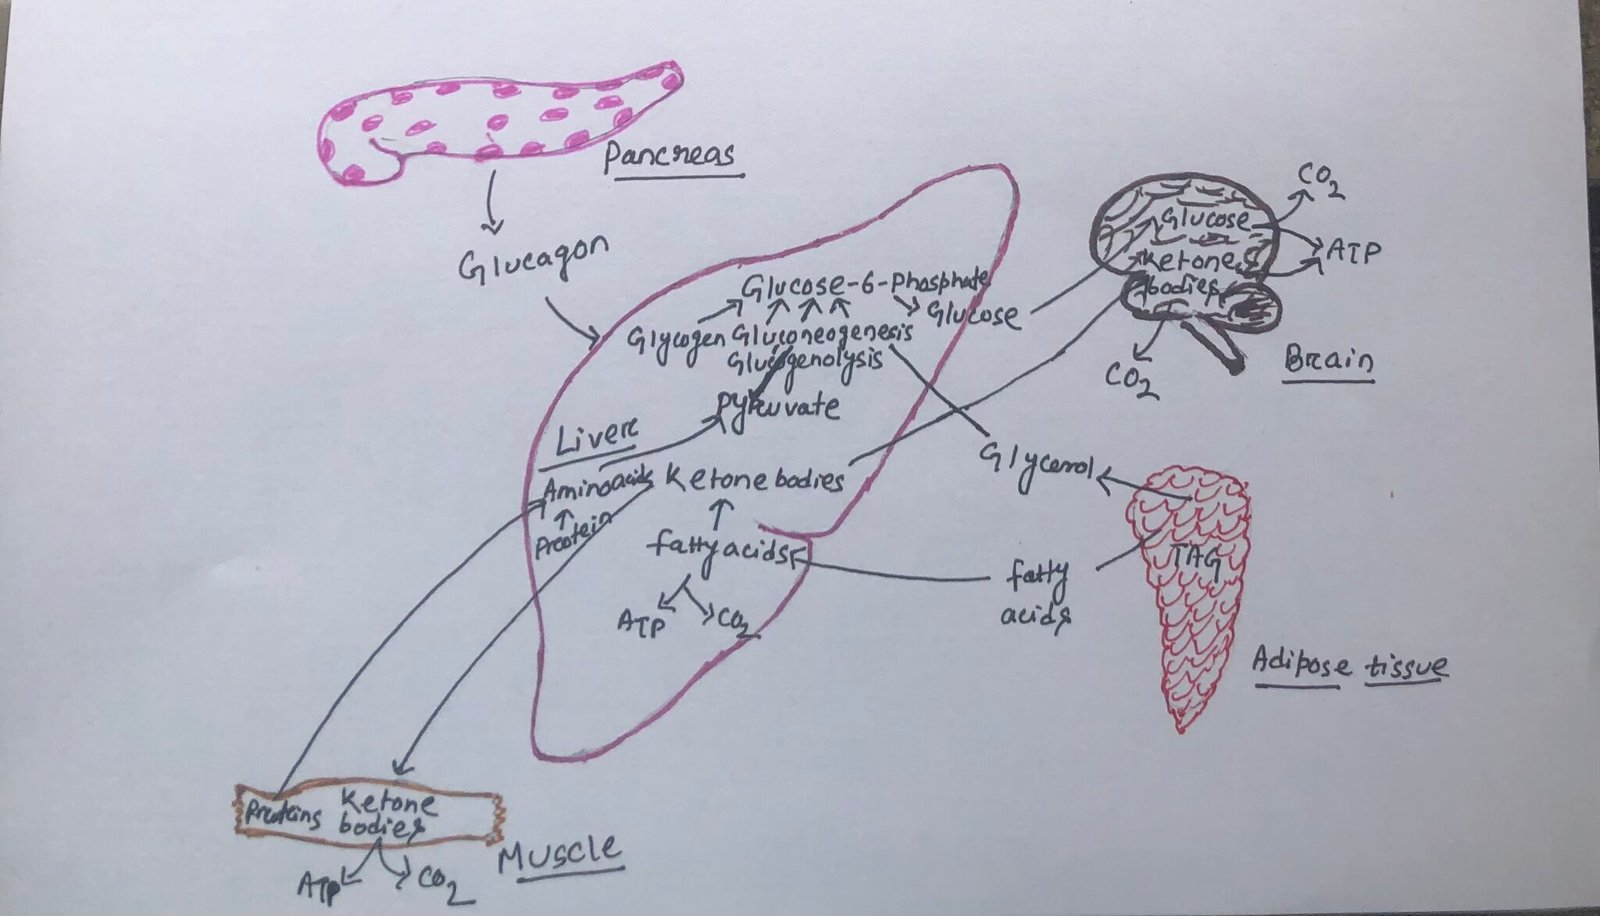 Pancreas
Glucagon
Glucose-6-Phosphate
Glucose
Glycogen Gluconeogenesis
Glucogenolysis
Pyruvate
Liver
Aminoacids
Protein
Ketone bodies
fatty acids
ATP
CO2
Glucose
Ketones
bodies
CO2
ATP
CO2
Brain
Glycerol
TAG
fatty
acids
Adipose tissue
Proteins
Ketone
bodies
ATP
CO2
Muscle